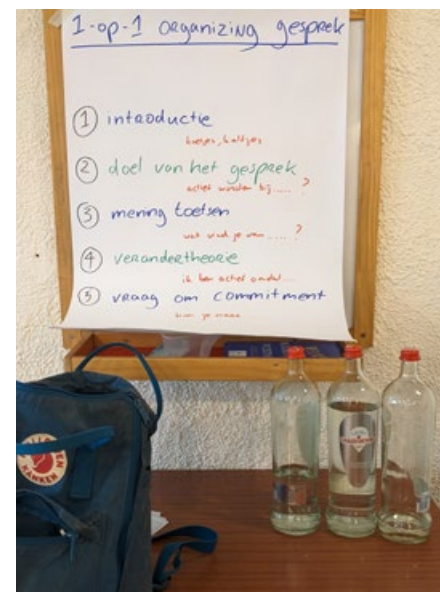 1-op-1 organizing gesprek
① introductie
koetjes, kalfjes
② doel van het gesprek
actief worden bij ..... ?
③ mening toetsen
wat vind je van ..... ?
④ verandertheorie
ik ben actief omdat ...
⑤ vraag om commitment
kom je
KÅNKEN